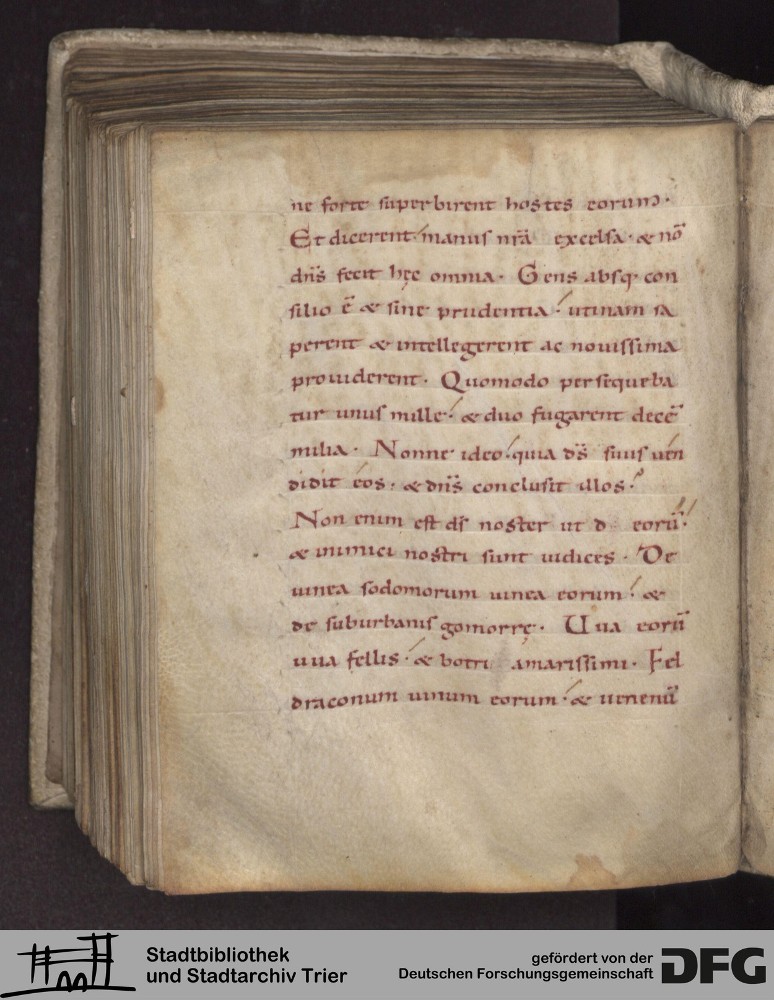 ne forte superbirent hostes eorum.
Et dicerent manus nr̄a excelsa. & nō
dn̄s fecit hęc omnia. Gens absq. con
silio ē & sine prudentia. utinam sa
perent & intellegerent ac nouissima
prouiderent. Quomodo persequeba
tur unus mille. & duo fugarent decē
milia. Nonne ideo. quia ds̄ suus uen
didit eos. & dn̄s conclusit illos.
Non enim est ds̄ noster ut d eorū.
& inimici nostri sunt iudices. De
uinea sodomorum uinea eorum. &
de suburbanis gomorrę. Uua eorū
uua fellis. & botri amarissimi. Fel
draconum uinum eorum. & uenenū
Stadtbibliothek
und Stadtarchiv Trier
gefördert von der
Deutschen Forschungsgemeinschaft
DFG